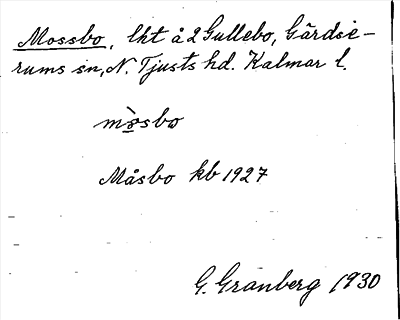 Mossbo, lht å 2 Gullebo, Gärdse-
rums sn, N. Tjusts hd. Kalmar l.
mòsbo
Måsbo kb 1927
G. Granberg 1930